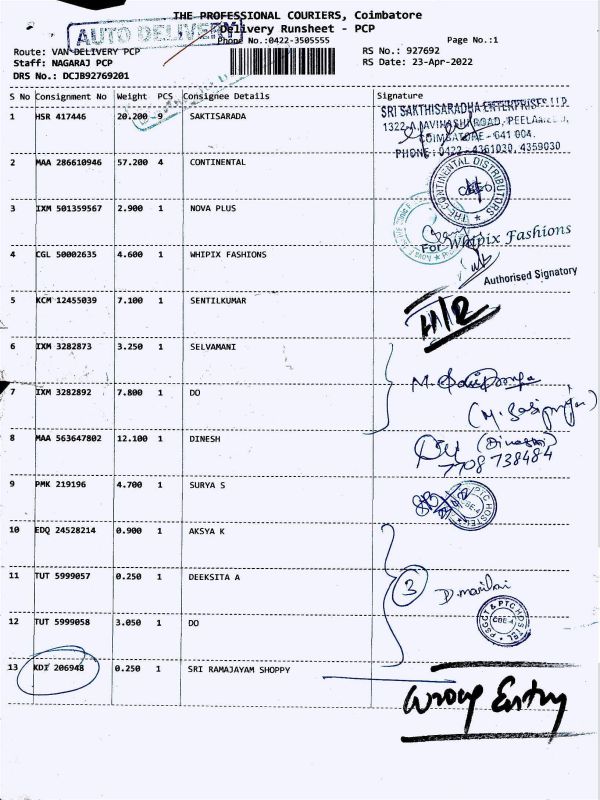 THE PROFESSIONAL COURIERS, Coimbatore
AUTO DELIVERY
Delivery Runsheet - PCP
Phone No.:0422-3505555
Page No.:1
Route: VAN DELIVERY PCP
RS No.: 927692
Staff: NAGARAJ PCP
RS Date: 23-Apr-2022
DRS No.: DCJB92769201
S No Consignment No Weight PCS Consignee Details Signature
1 HSR 417446 20.200 9 SAKTISARADA
SRI SAKTHISARADHA ENTERPRISES LLP
1322-A, AVINASHI ROAD, PEELAMEDU,
COIMBATORE - 641 004.
PHONE : 0422 - 4361030, 4359030
2 MAA 286610946 57.200 4 CONTINENTAL
THE CONTINENTAL DISTRIBUTORS
3 IXM 501359567 2.900 1 NOVA PLUS
4 CGL 50002635 4.600 1 WHIPIX FASHIONS
For Whipix Fashions
Authorised Signatory
5 KCM 12455039 7.100 1 SENTILKUMAR
H/R
6 IXM 3282873 3.250 1 SELVAMANI
7 IXM 3282892 7.800 1 DO
8 MAA 563647802 12.100 1 DINESH
7708 738484
9 PMK 219196 4.700 1 SURYA S
PTC HOSTEL
10 EDQ 24528214 0.900 1 AKSYA K
11 TUT 5999057 0.250 1 DEEKSITA A
3
12 TUT 5999058 3.050 1 DO
PSGCT & PTC HOSTEL
CBE-4
13 KDI 206948 0.250 1 SRI RAMAJAYAM SHOPPY
Wrong Entry